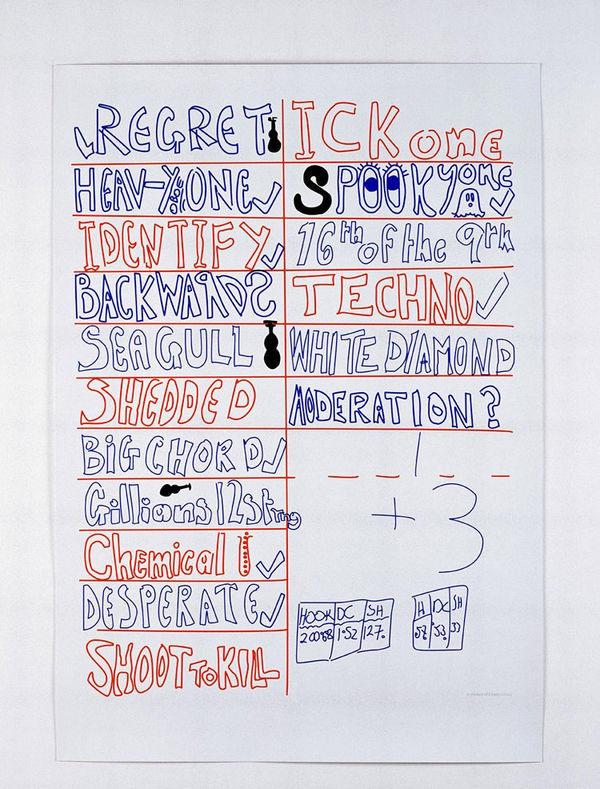 REGRET
HEAV-Y ONE
IDENTIFY
BACKWARDS
SEAGULL
SHEDDED
BIG CHORD
Gillions 12 String
Chemical
DESPERATE
SHOOT TO KILL
ICK one
SPOOKY one
16th of the 9th
TECHNO
WHITE DIAMOND
MODERATION?
1
+3
HOOK DC SH
1.52 127.
H DC SH